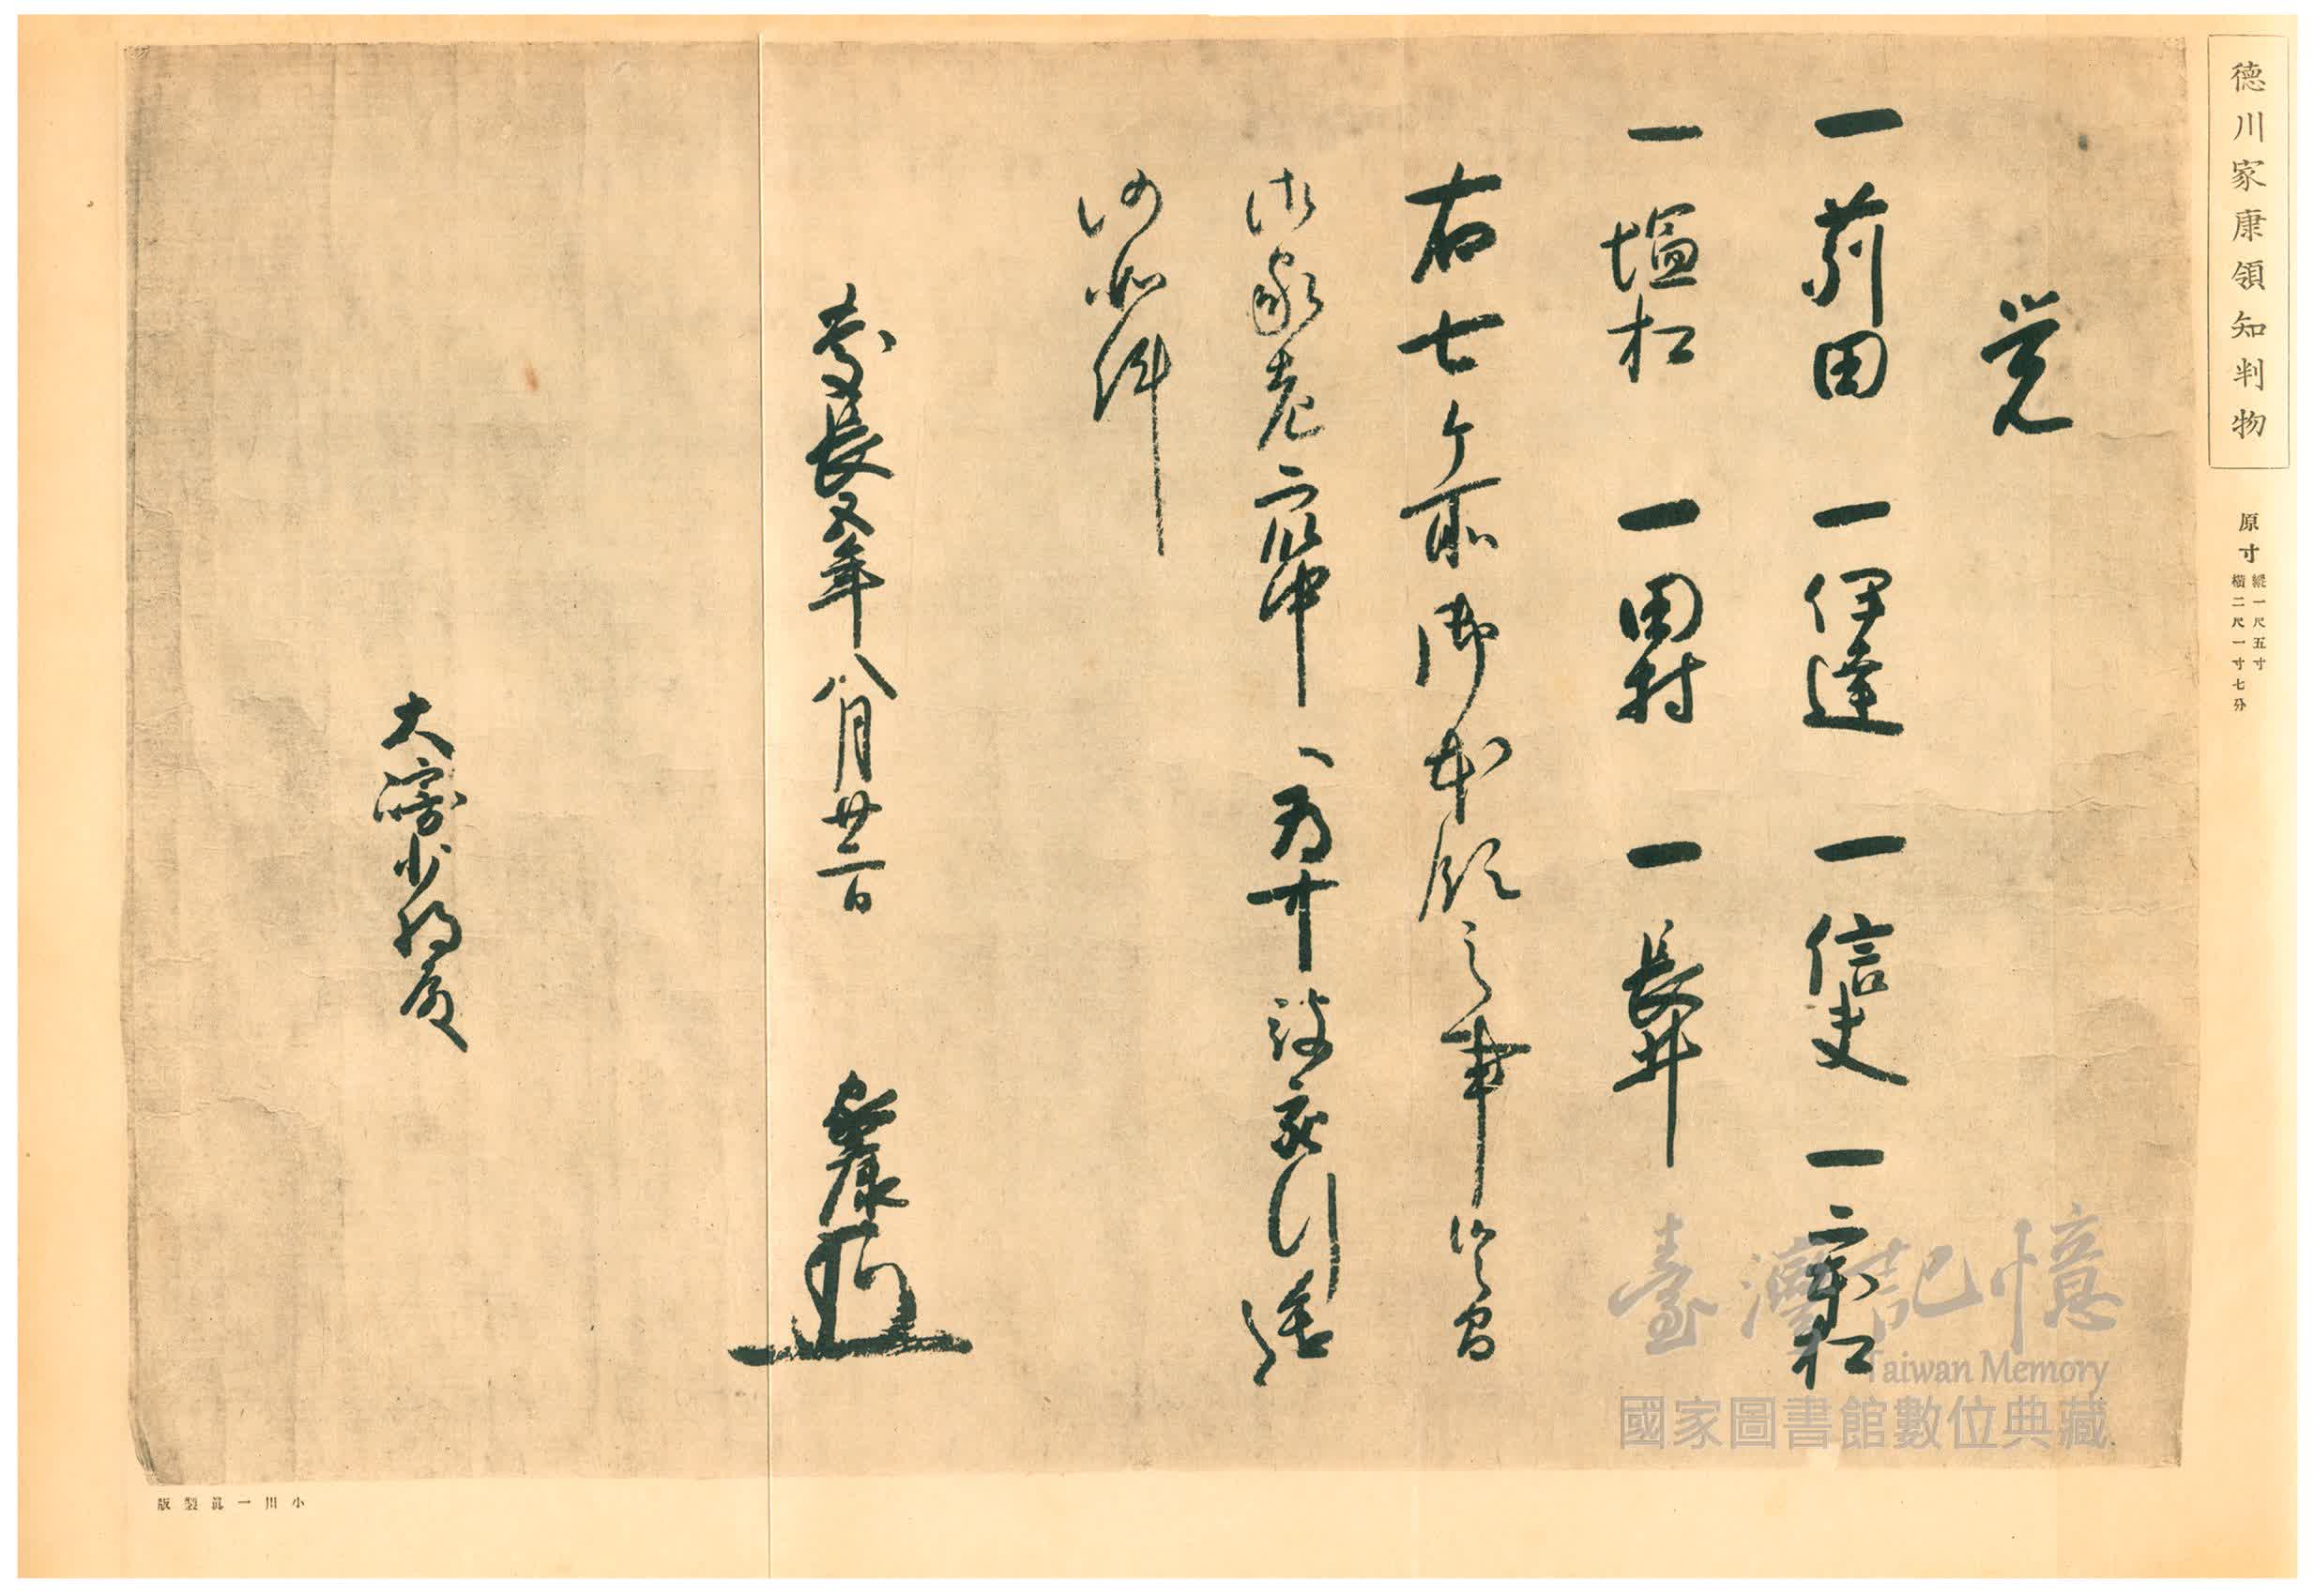 德川家康領知判物
原寸
縱一尺五寸
橫二尺一寸七分
覚
一苅田 一伊達 一信夫 一二本松
一塩松 一田村 一長井
右七ケ所御本領之事候之間
御家老衆中へ為可被宛行進
仍如件
慶長五年八月廿二日 家康
大崎少将殿
小川一眞製版
臺灣記憶
Taiwan Memory
國家圖書館數位典藏